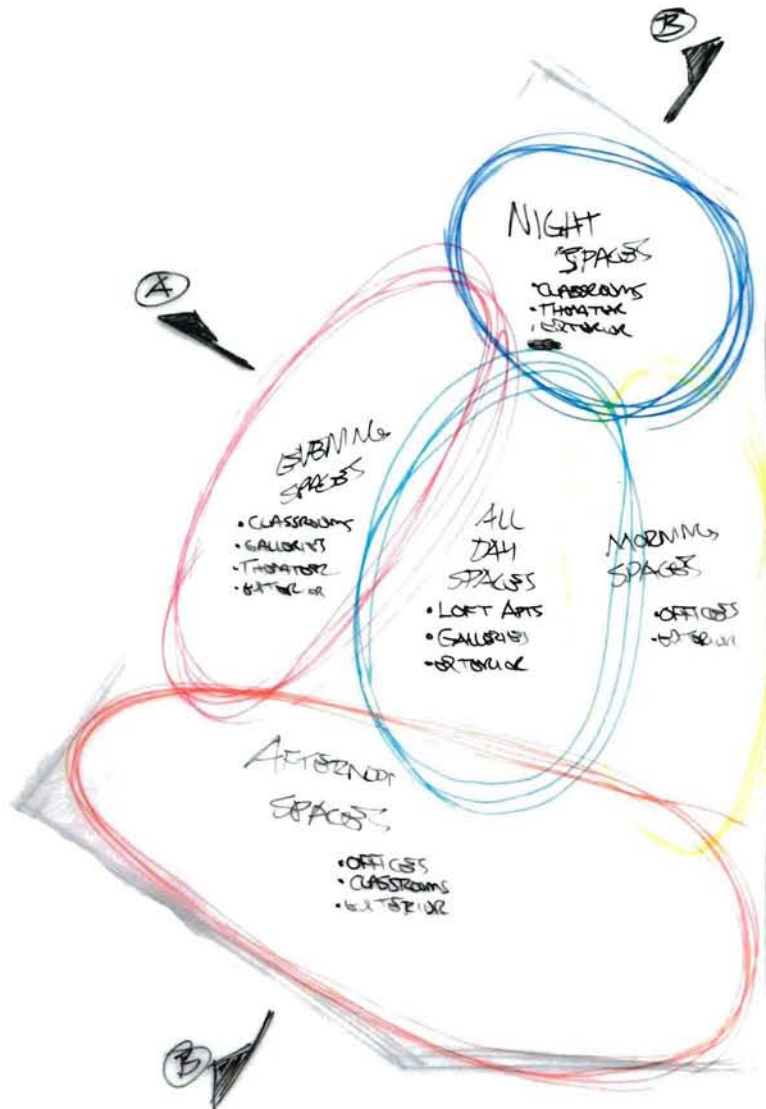 B
NIGHT
SPACES
• CLASSROOMS
• THEATER
• EXTERIOR
A
EVENING
SPACES
• CLASSROOMS
• GALLERIES
• THEATER
• EXTERIOR
ALL
DAY
SPACES
• LOFT APTS
• GALLERIES
• EXTERIOR
MORNING
SPACES
• OFFICES
• EXTERIOR
AFTERNOON
SPACES
• OFFICES
• CLASSROOMS
• EXTERIOR
B